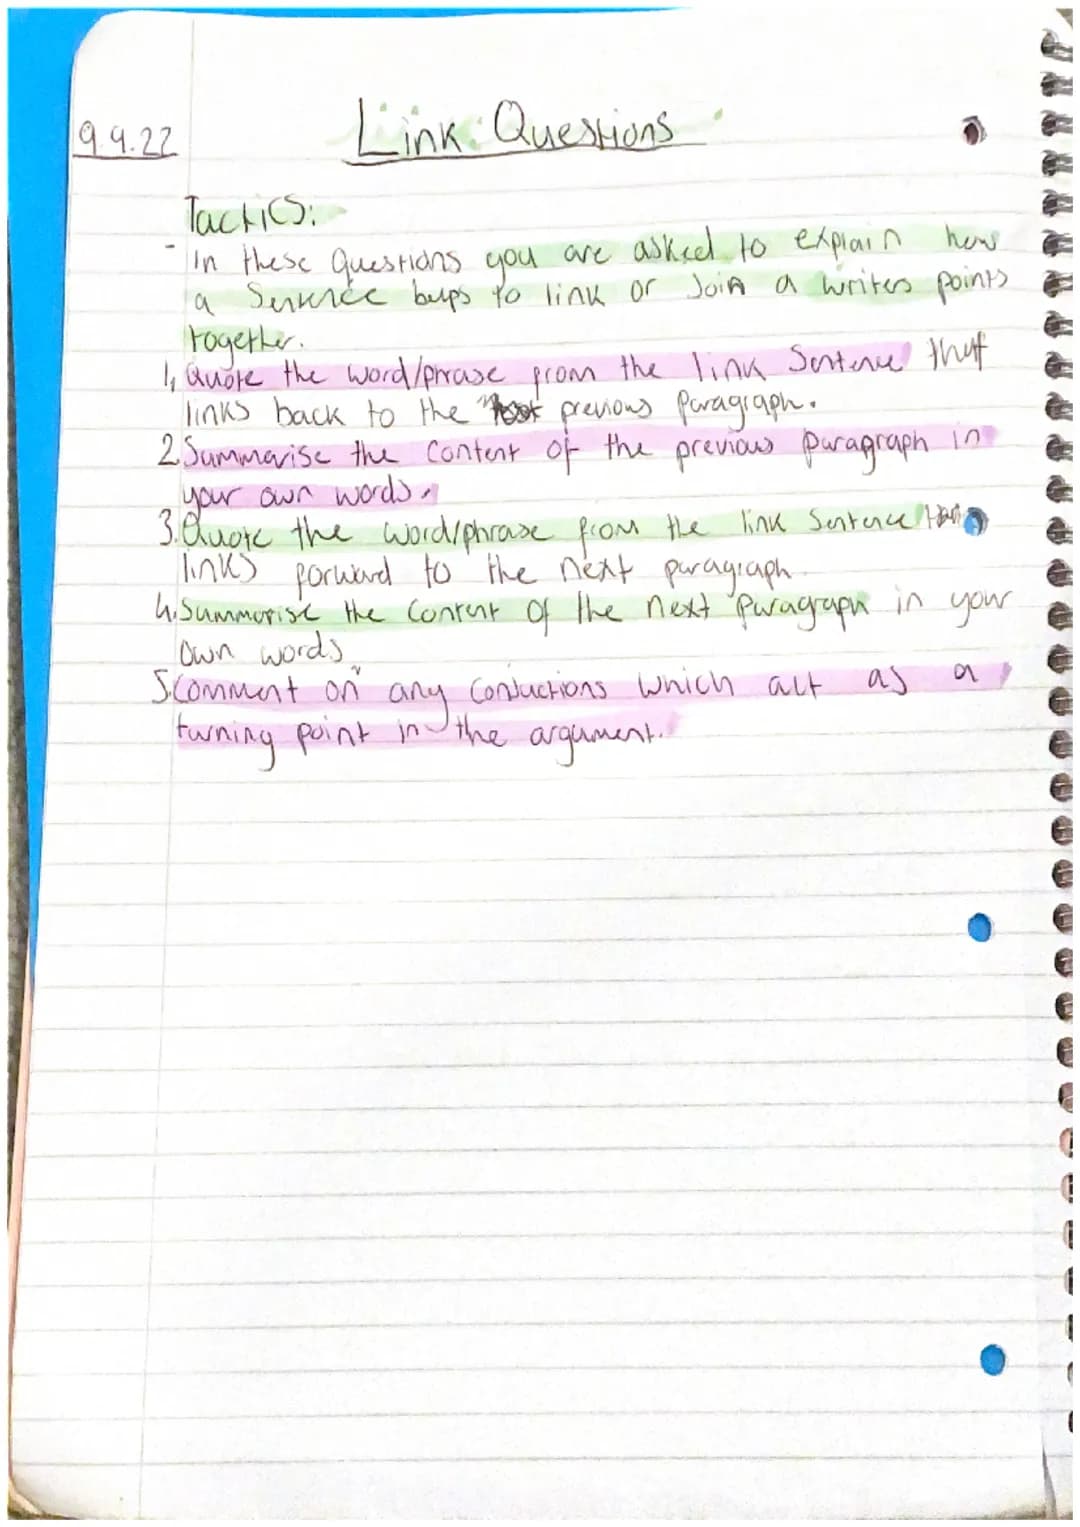 9.9.22
Link Questions
Tactics:
- In these Questions you are asked to explain how
a Sentence helps to link or Join a writers points
together.
1, Quote the word/phrase from the link Sentence that
links back to the previous paragraph.
2. Summarise the content of the previous paragraph in
your own words.
3. Quote the word/phrase from the link Sentence that
links forward to the next paragraph.
4. Summarise the content of the next paragraph in your
own words
5. Comment on any Conjuctions which act as a
turning point in the argument.